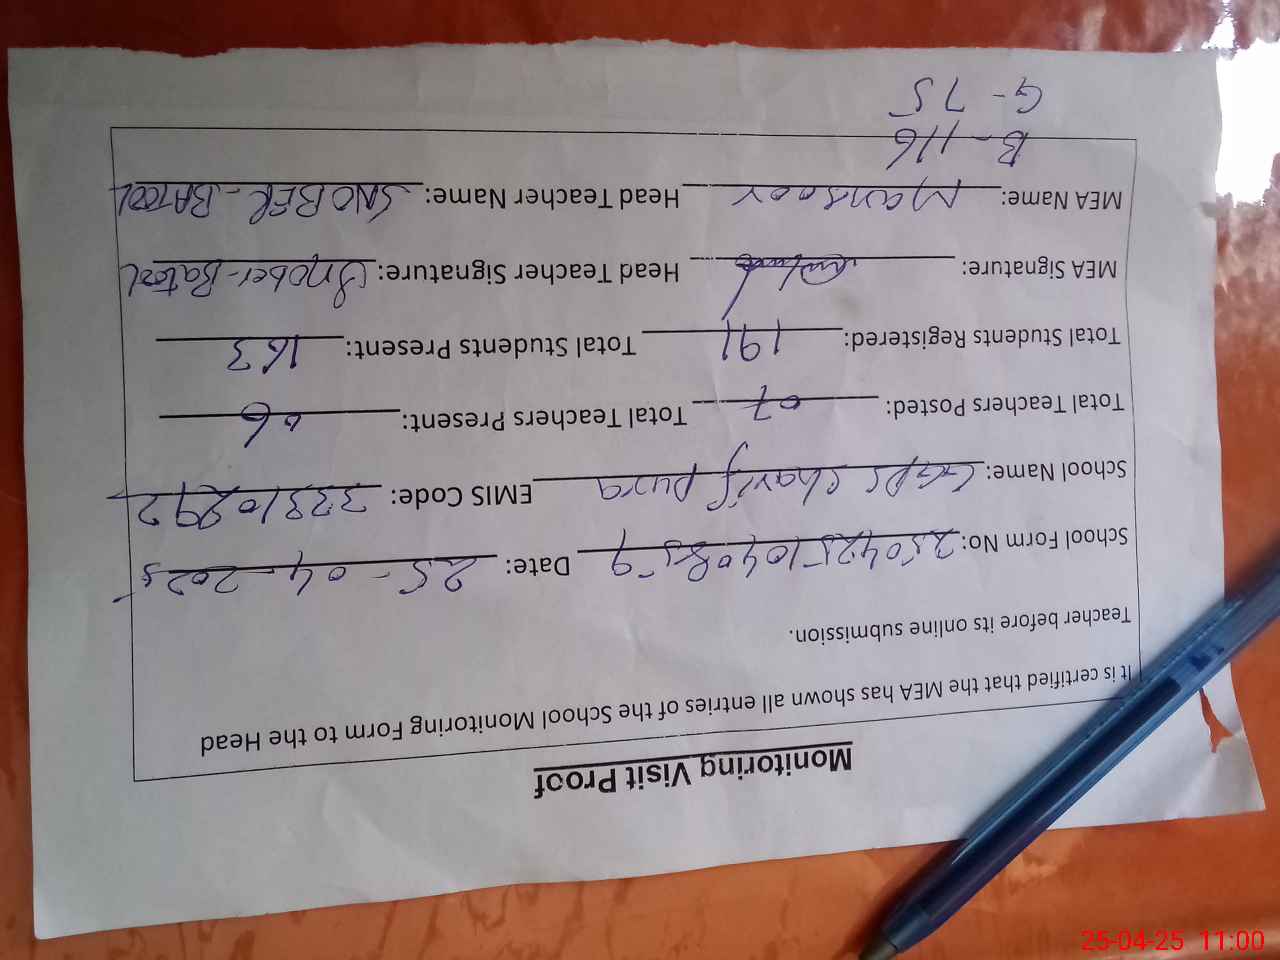 Monitoring Visit Proof
It is certified that the MEA has shown all entries of the School Monitoring Form to the Head
Teacher before its online submission.
School Form No: Date: 25-04-2025
School Name: GGPS sharif pura EMIS Code: 33310292
Total Teachers Posted: 07 Total Teachers Present: 06
Total Students Registered: 191 Total Students Present: 163
MEA Signature: Head Teacher Signature: Snober-Batool
MEA Name: Mansoor Head Teacher Name: SNOBER-BATOOL
B-116
G-75
25-04-25 11:00